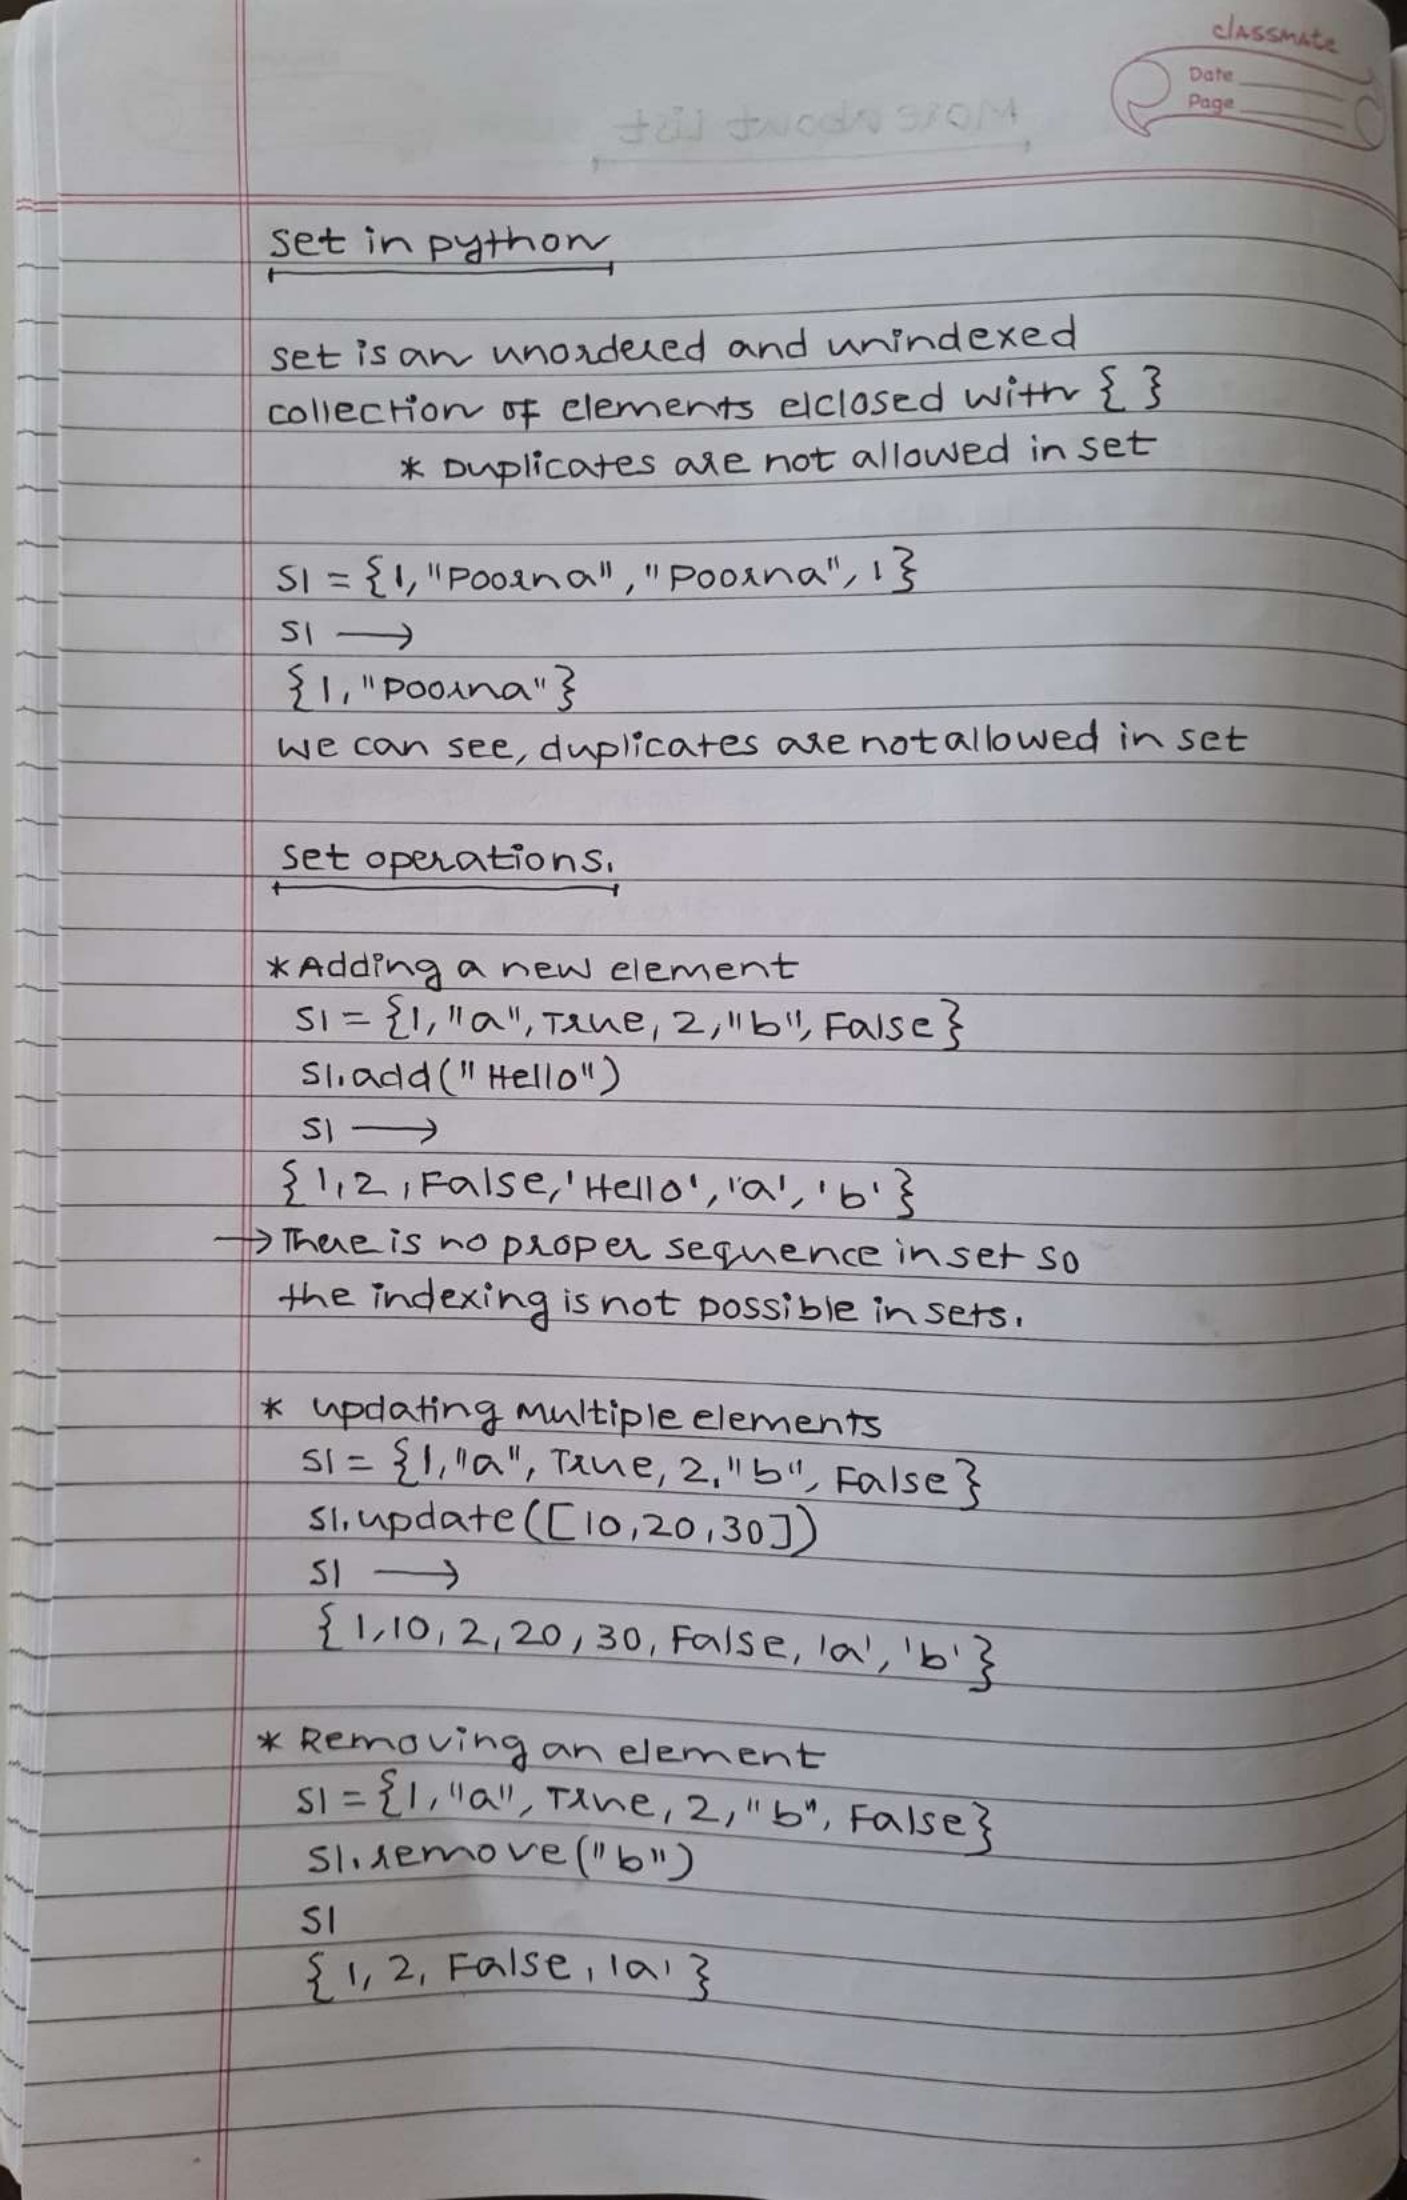 classmate
Date
Page
More about List
set in python
set is an unordered and unindexed
collection of elements elclosed with { }
* Duplicates are not allowed in set
S1 = {1, "Poorna", "Poorna", 1}
S1 →
{1, "Poorna"}
we can see, duplicates are not allowed in set
set operations.
* Adding a new element
S1 = {1, "a", True, 2, "b", False}
S1.add("Hello")
S1 →
{1, 2, False, 'Hello', 'a', 'b'}
→ There is no proper sequence in set so
the indexing is not possible in sets.
* updating multiple elements
S1 = {1, "a", True, 2, "b", False}
S1.update([10, 20, 30])
S1 →
{1, 10, 2, 20, 30, False, 'a', 'b'}
* Removing an element
S1 = {1, "a", True, 2, "b", False}
S1.remove("b")
S1
{1, 2, False, 'a'}